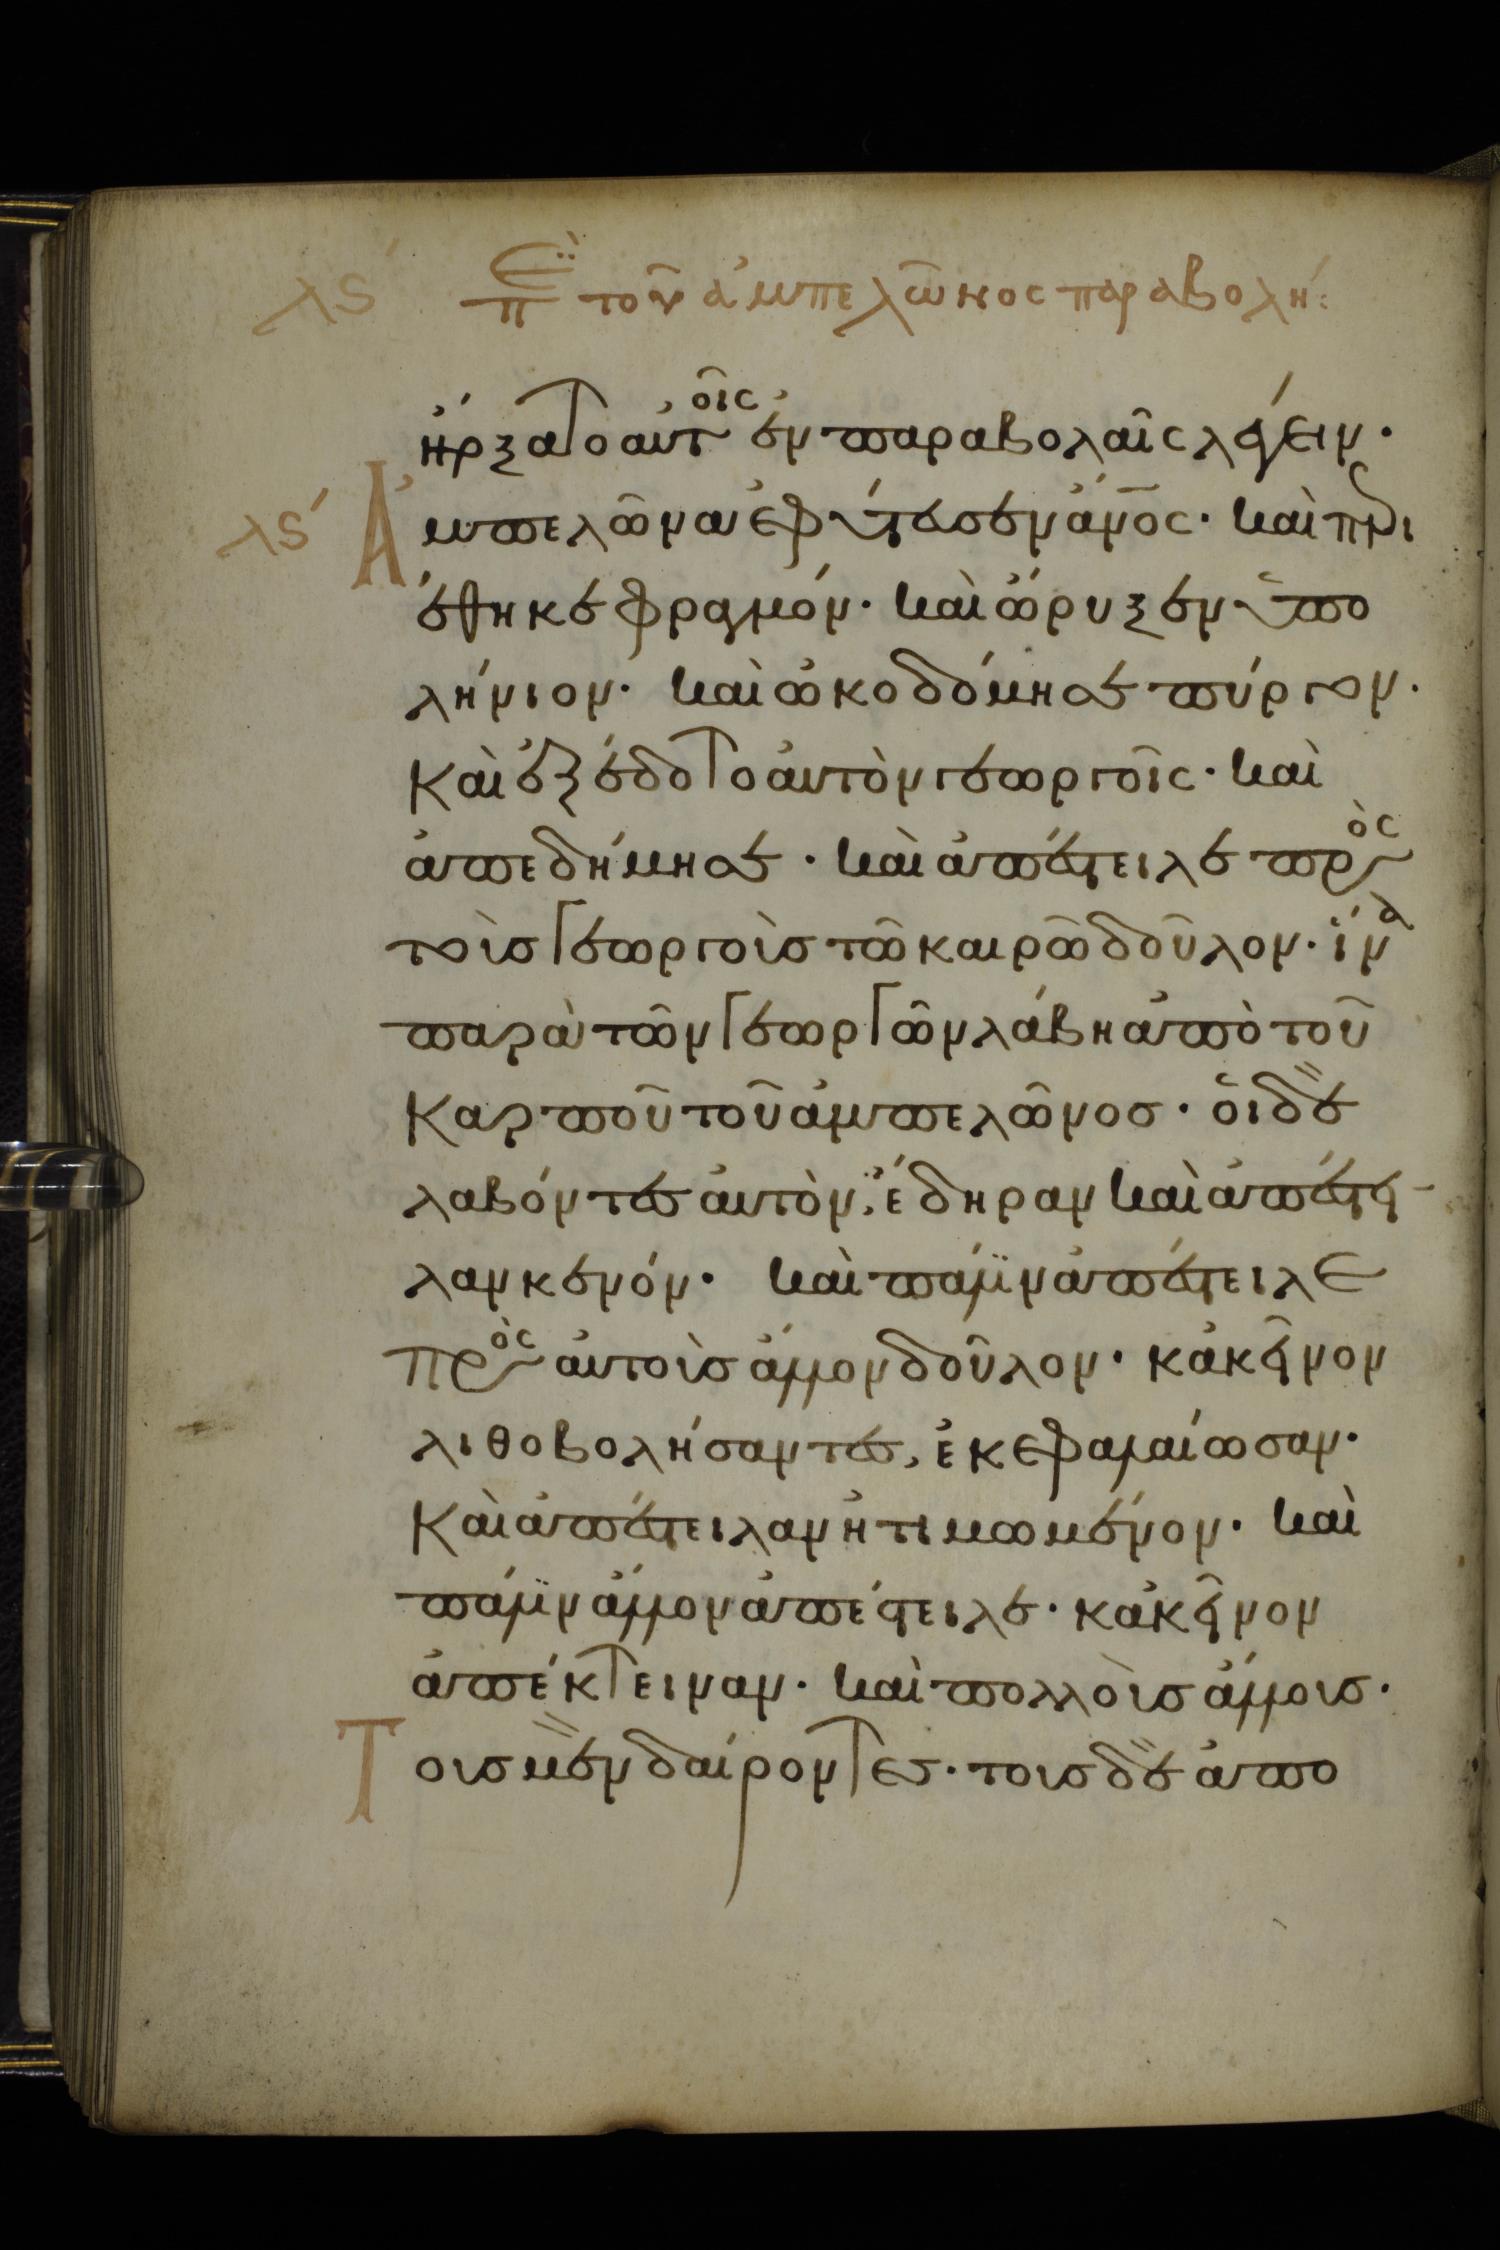 λϛʹ Πε̈ὶ τοῦ ἀμπελῶνος παραβολή:
ἤρξατο αὐτοῖς ἐν παραβολαῖς λέγειν·
λϛʹ Ἀμπελῶνα ἐφύτευσεν ἄν̅ο̅ς· καὶ περι
έθηκε φραγμόν· καὶ ὤρυξεν ὑπο
λήνιον· καὶ ὠκοδόμησε πύργον·
Καὶ ἐξέδοτο αὐτὸν γεωργοῖς· καὶ
ἀπεδήμησε· καὶ ἀπέστειλε πρὸς
τοὺς γεωργοὺς τῶ καιρῶ δοῦλον· ἵνα
παρὰ τῶν γεωργῶν λάβη ἀπὸ τοῦ
Καρποῦ τοῦ ἀμπελῶνος· οἱ δὲ
λαβόντες αὐτὸν, ἔδηραν καὶ ἀπέστει
λαν κενόν· καὶ πάλιν ἀπέστειλε
πρὸς αὐτοὺς ἄλλον δοῦλον· κἀκεῖνον
λιθοβολήσαντες, ἐκεφαλαίωσαν·
Καὶ ἀπέστειλαν ἠτιμωμένον· καὶ
πάλιν ἄλλον ἀπέστειλε· κἀκεῖνον
ἀπέκτειναν· καὶ πολλοὺς ἄλλους·
Τοὺς μὲν δαίροντες· τοὺς δὲ ἀπο